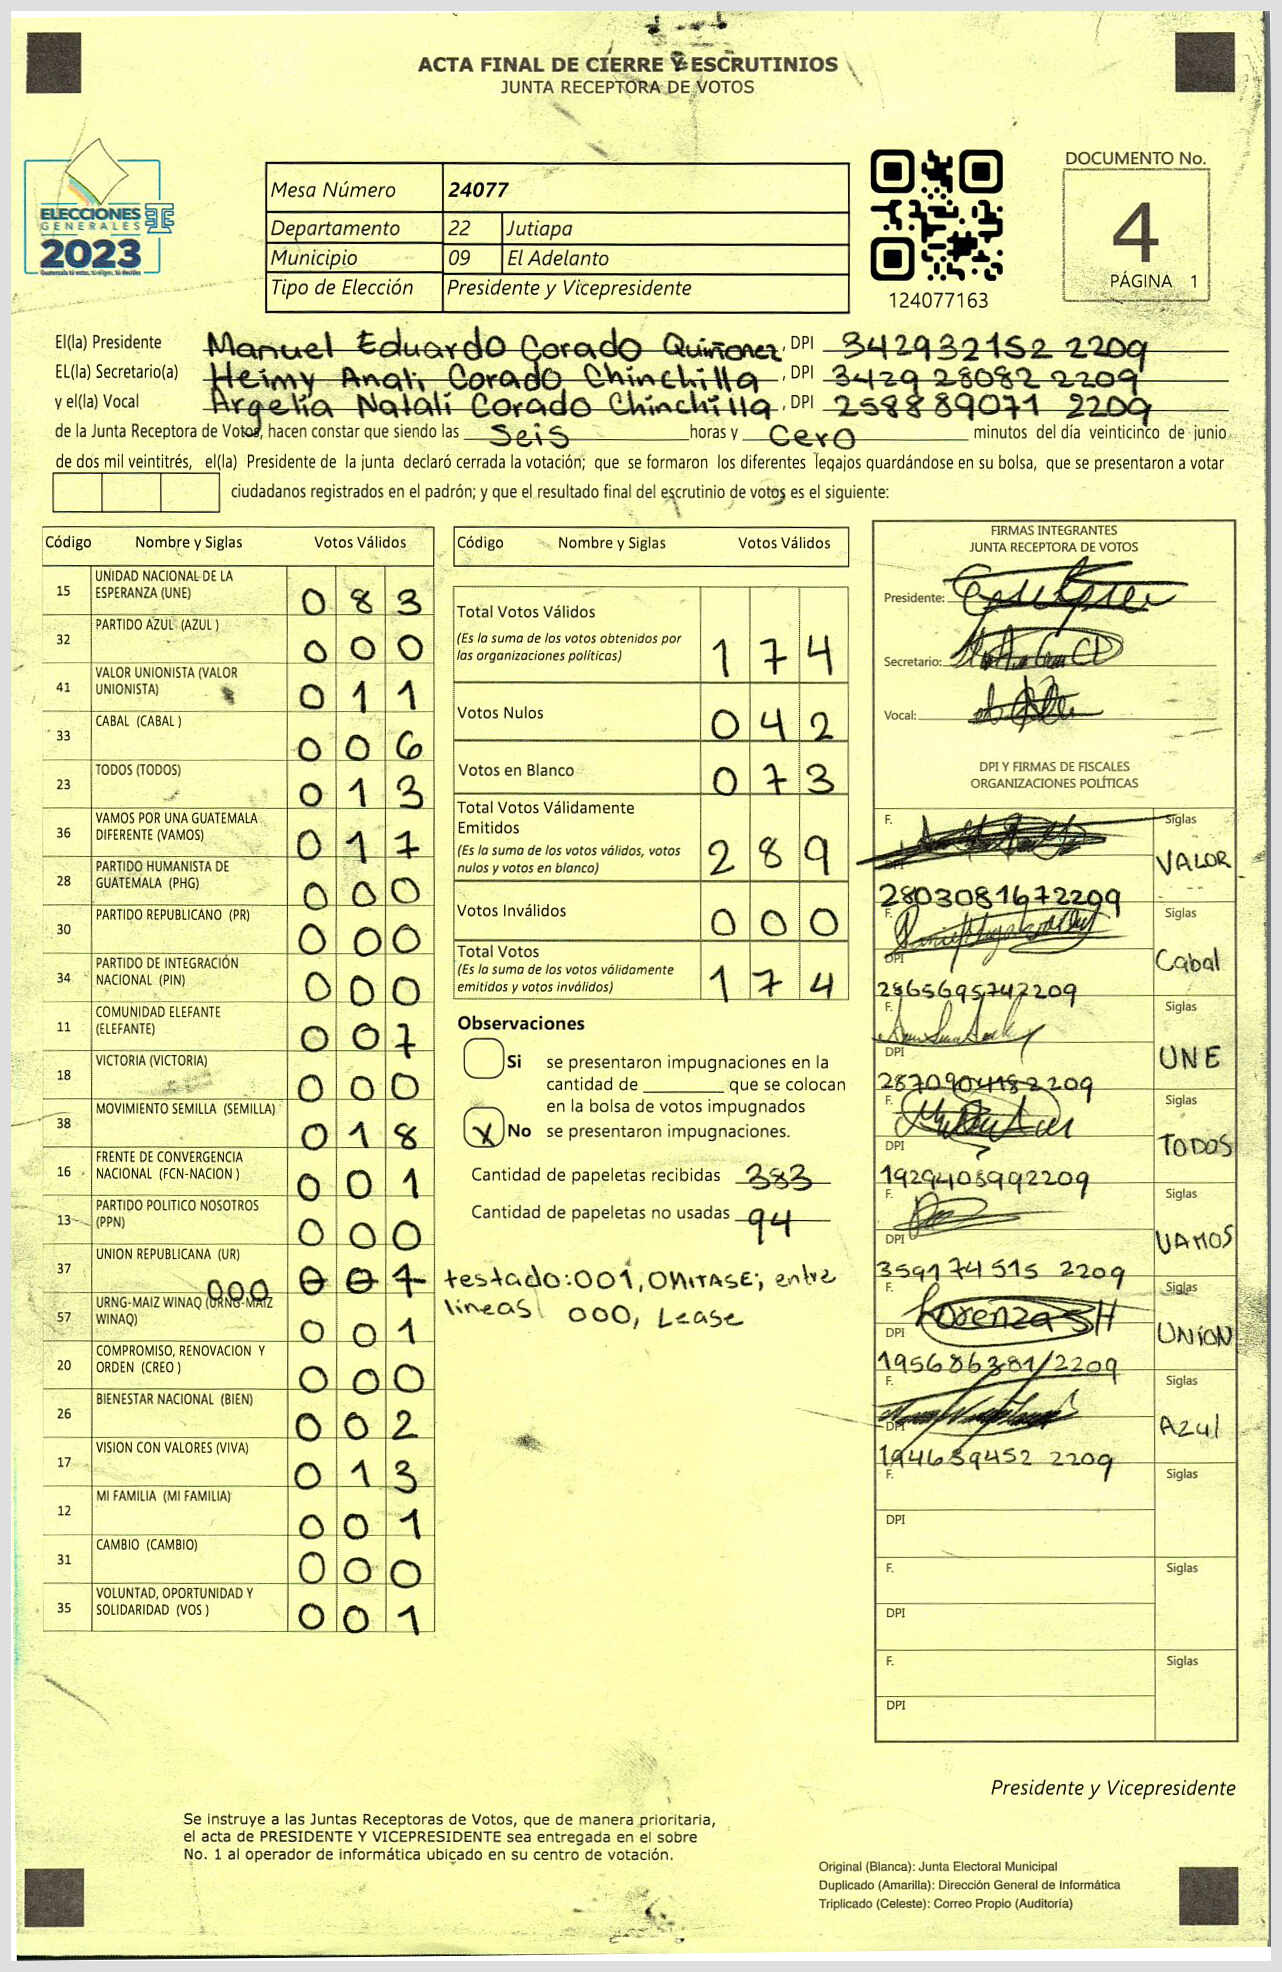 ACTA FINAL DE CIERRE Y ESCRUTINIOS
JUNTA RECEPTORA DE VOTOS
ELECCIONES
GENERALES
2023
Mesa Número 24077
Departamento 22 Jutiapa
Municipio 09 El Adelanto
Tipo de Elección Presidente y Vicepresidente
124077163
DOCUMENTO No.
4
PÁGINA 1
El(la) Presidente Manuel Eduardo Corado Quiñonez, DPI 342932152 2209
EL(la) Secretario(a) Heimy Anali Corado Chinchilla, DPI 3429 28082 2209
y el(la) Vocal Argelia Natali Corado Chinchilla, DPI 258889071 2209
de la Junta Receptora de Votos, hacen constar que siendo las Seis horas y Cero minutos del día veinticinco de junio
de dos mil veintitrés, el(la) Presidente de la junta declaró cerrada la votación; que se formaron los diferentes legajos guardándose en su bolsa, que se presentaron a votar
ciudadanos registrados en el padrón; y que el resultado final del escrutinio de votos es el siguiente:
Código Nombre y Siglas Votos Válidos
15 UNIDAD NACIONAL DE LA ESPERANZA (UNE) 0 8 3
32 PARTIDO AZUL (AZUL ) 0 0 0
41 VALOR UNIONISTA (VALOR UNIONISTA) 0 1 1
33 CABAL (CABAL ) 0 0 6
23 TODOS (TODOS) 0 1 3
36 VAMOS POR UNA GUATEMALA DIFERENTE (VAMOS) 0 1 7
28 PARTIDO HUMANISTA DE GUATEMALA (PHG) 0 0 0
30 PARTIDO REPUBLICANO (PR) 0 0 0
34 PARTIDO DE INTEGRACIÓN NACIONAL (PIN) 0 0 0
11 COMUNIDAD ELEFANTE (ELEFANTE) 0 0 7
18 VICTORIA (VICTORIA) 0 0 0
38 MOVIMIENTO SEMILLA (SEMILLA) 0 1 8
16 FRENTE DE CONVERGENCIA NACIONAL (FCN-NACION ) 0 0 1
13 PARTIDO POLITICO NOSOTROS (PPN) 0 0 0
37 UNION REPUBLICANA (UR) 000 0 0 1
57 URNG-MAIZ WINAQ (URNG-MAIZ WINAQ) 0 0 1
20 COMPROMISO, RENOVACION Y ORDEN (CREO ) 0 0 0
26 BIENESTAR NACIONAL (BIEN) 0 0 2
17 VISION CON VALORES (VIVA) 0 1 3
12 MI FAMILIA (MI FAMILIA) 0 0 1
31 CAMBIO (CAMBIO) 0 0 0
35 VOLUNTAD, OPORTUNIDAD Y SOLIDARIDAD (VOS ) 0 0 1
Código Nombre y Siglas Votos Válidos
Total Votos Válidos
(Es la suma de los votos obtenidos por
las organizaciones políticas) 1 7 4
Votos Nulos 0 4 2
Votos en Blanco 0 7 3
Total Votos Válidamente
Emitidos
(Es la suma de los votos válidos, votos
nulos y votos en blanco) 2 8 9
Votos Inválidos 0 0 0
Total Votos
(Es la suma de los votos válidamente
emitidos y votos inválidos) 1 7 4
Observaciones
Si se presentaron impugnaciones en la
cantidad de ________ que se colocan
en la bolsa de votos impugnados
X No se presentaron impugnaciones.
Cantidad de papeletas recibidas 383
Cantidad de papeletas no usadas 94
testado: 001, OMITASE; entre
lineas 000, Lease
FIRMAS INTEGRANTES
JUNTA RECEPTORA DE VOTOS
Presidente:
Secretario:
Vocal:
DPI Y FIRMAS DE FISCALES
ORGANIZACIONES POLÍTICAS
F. Siglas
DPI VALOR
2803081672209
F. Siglas
DPI Cabal
2865695742209
F. Siglas
DPI UNE
2870904182209
F. Siglas
DPI TODOS
1929405992209
F. Siglas
DPI VAMOS
359174515 2209
F. Lorenza SH Siglas
DPI UNION
195686381/2209
F. Siglas
DPI AZUL
194639452 2209
F. Siglas
DPI
F. Siglas
DPI
F. Siglas
DPI
Presidente y Vicepresidente
Se instruye a las Juntas Receptoras de Votos, que de manera prioritaria,
el acta de PRESIDENTE Y VICEPRESIDENTE sea entregada en el sobre
No. 1 al operador de informática ubicado en su centro de votación.
Original (Blanca): Junta Electoral Municipal
Duplicado (Amarilla): Dirección General de Informática
Triplicado (Celeste): Correo Propio (Auditoría)